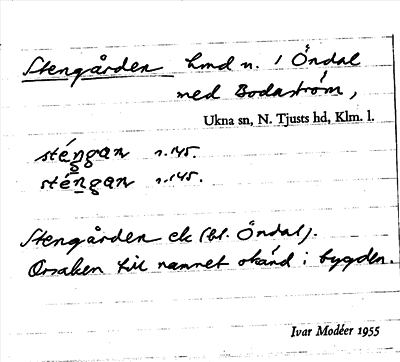 Stengården hmd n. i Öndal
med Bodaström,
Ukna sn, N. Tjusts hd, Klm. l.
sténgan r.145.
sténgan r.145.
Stengården ek (bl. Öndal).
Orsaken till namnet okänd i bygden.
Ivar Modéer 1955